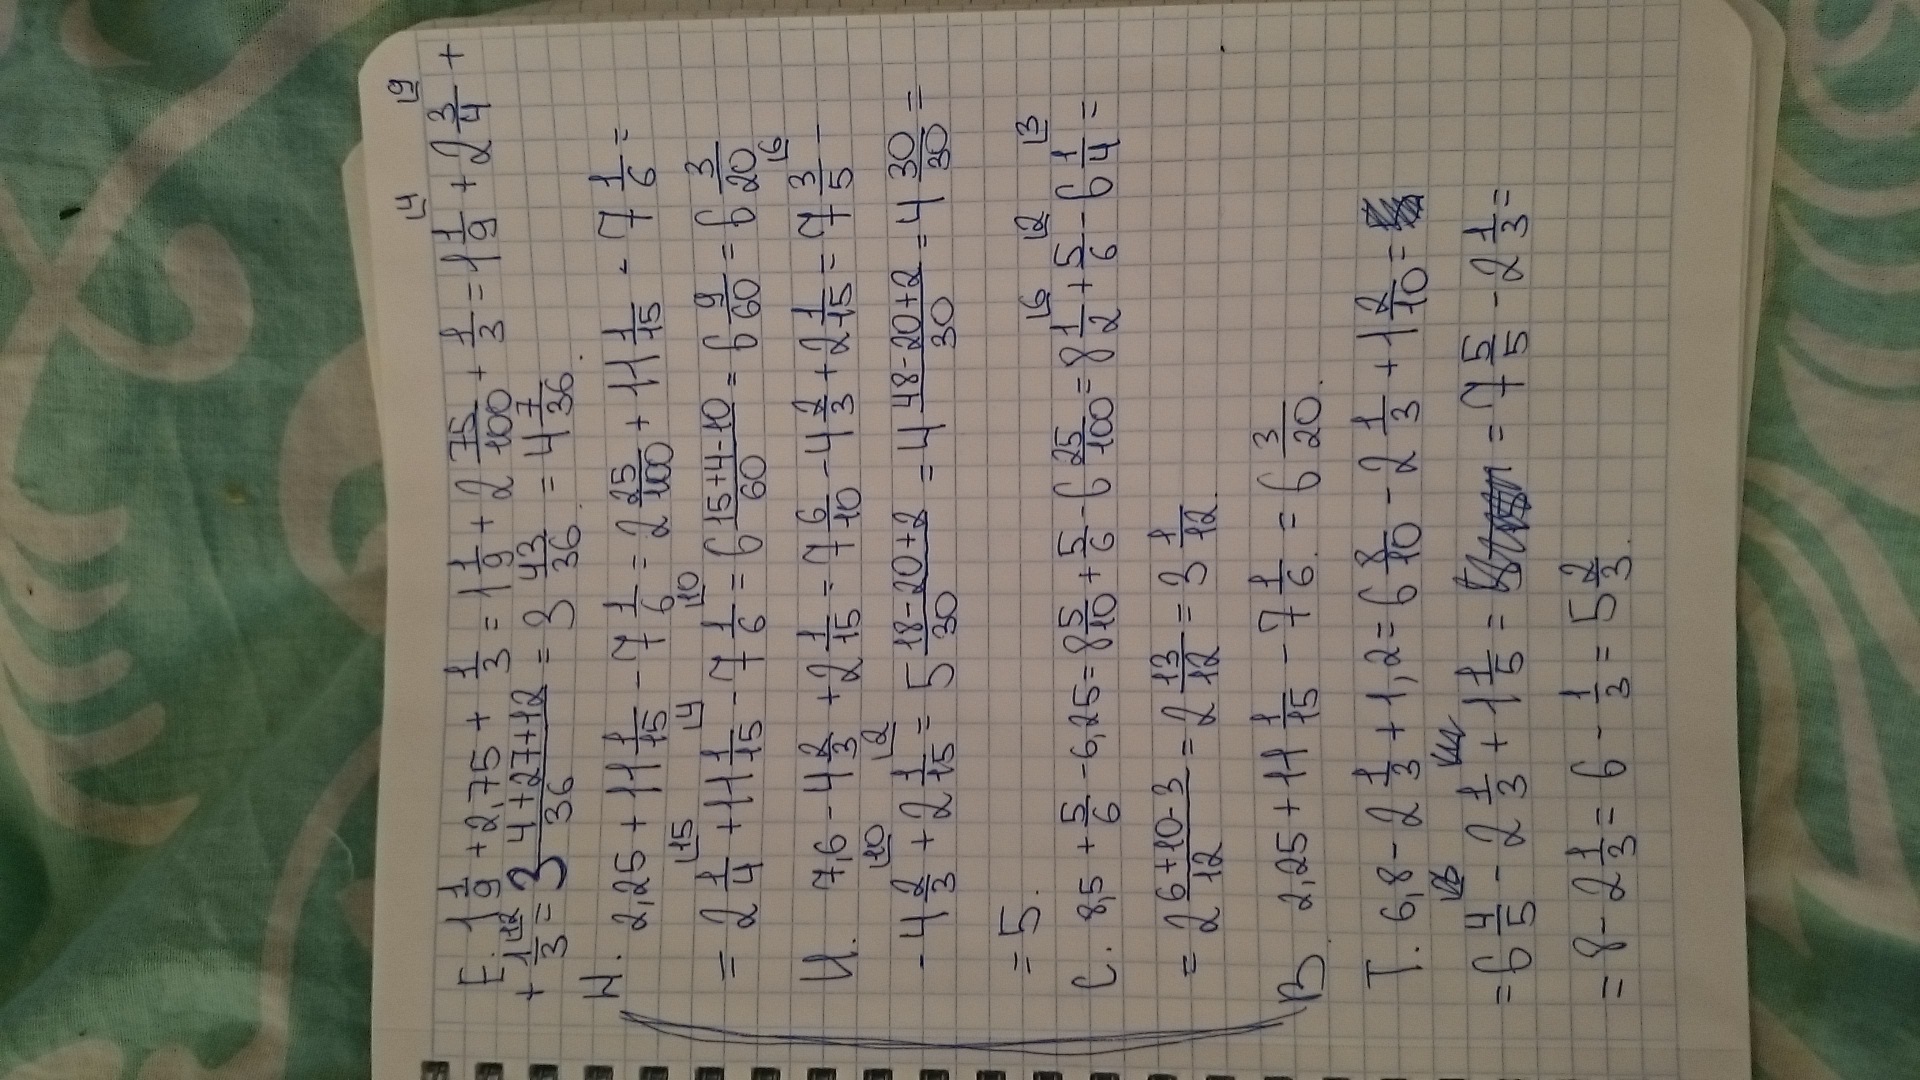 Е. 1 1/9 + 2,75 + 1/3 = 1 1/9 + 2 75/100 + 1/3 = 1 1/9 ⌊4 + 2 3/4 ⌊9 +
+ 1/3 ⌊12 = 3 (4+27+12)/36 = 3 43/36 = 4 7/36.
Н. 2,25 + 11 1/15 - 7 1/6 = 2 25/100 + 11 1/15 - 7 1/6 =
= 2 1/4 ⌊15 + 11 1/15 ⌊4 - 7 1/6 ⌊10 = 6 (15+4-10)/60 = 6 9/60 = 6 3/20
И. 7,6 - 4 2/3 + 2 1/15 = 7 6/10 - 4 2/3 + 2 1/15 = 7 3/5 ⌊6 -
- 4 2/3 ⌊10 + 2 1/15 ⌊2 = 5 (18-20+2)/30 = 4 (48-20+2)/30 = 4 30/30 =
= 5.
С. 8,5 + 5/6 - 6,25 = 8 5/10 + 5/6 - 6 25/100 = 8 1/2 ⌊6 + 5/6 ⌊2 - 6 1/4 ⌊3 =
= 2 (6+10-3)/12 = 2 13/12 = 3 1/12.
В. 2,25 + 11 1/15 - 7 1/6. = 6 3/20.
Т. 6,8 - 2 1/3 + 1,2 = 6 8/10 - 2 1/3 + 1 2/10 =
= 6 4/5 - 2 1/3 + 1 1/5 = = 7 5/5 - 2 1/3 =
= 8 - 2 1/3 = 6 - 1/3 = 5 2/3.